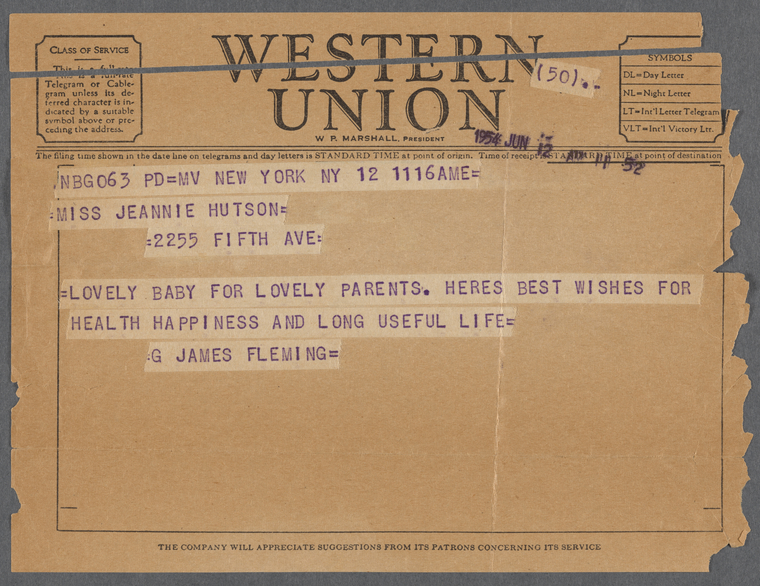 CLASS OF SERVICE
This is a full-rate
Telegram or Cable-
gram unless its de-
ferred character is in-
dicated by a suitable
symbol above or pre-
ceding the address.
WESTERN
UNION
W. P. MARSHALL, PRESIDENT
(50)..
SYMBOLS
DL=Day Letter
NL=Night Letter
LT=Int'l Letter Telegram
VLT=Int'l Victory Ltr.
1954 JUN 12 AM 11 52
The filing time shown in the date line on telegrams and day letters is STANDARD TIME at point of origin. Time of receipt is STANDARD TIME at point of destination
NBG063 PD=MV NEW YORK NY 12 1116AME=
=MISS JEANNIE HUTSON=
=2255 FIFTH AVE=
=LOVELY BABY FOR LOVELY PARENTS. HERES BEST WISHES FOR
HEALTH HAPPINESS AND LONG USEFUL LIFE=
=G JAMES FLEMING=
THE COMPANY WILL APPRECIATE SUGGESTIONS FROM ITS PATRONS CONCERNING ITS SERVICE